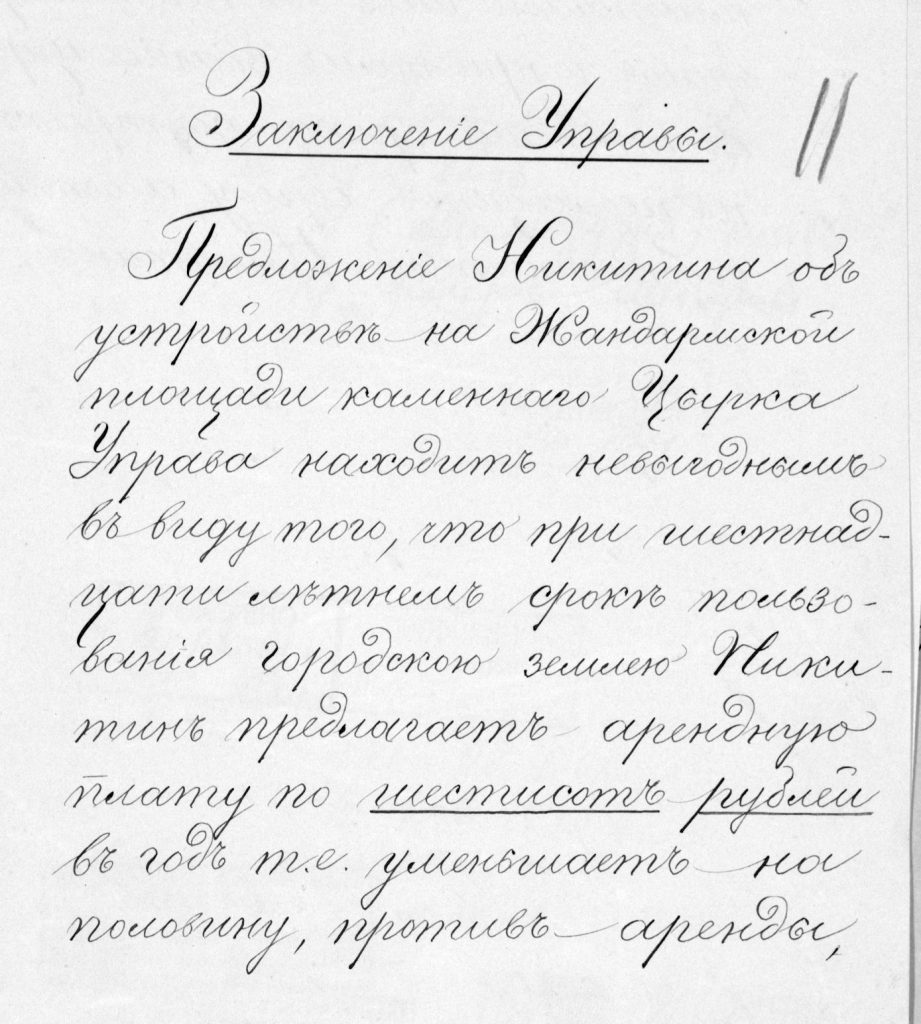 Заключеніе Управы.
11
Предложеніе Никитина объ
устройствѣ на Жандармской
площади каменнаго Цырка
Управа находитъ невыгоднымъ
въ виду того, что при шестнад-
цати лѣтнемъ срокѣ пользо-
ванія городскою землею Ники-
тинъ предлагаетъ арендную
плату по шестисотъ рублей
въ годъ т.е. уменьшаетъ на
половину, противъ аренды,